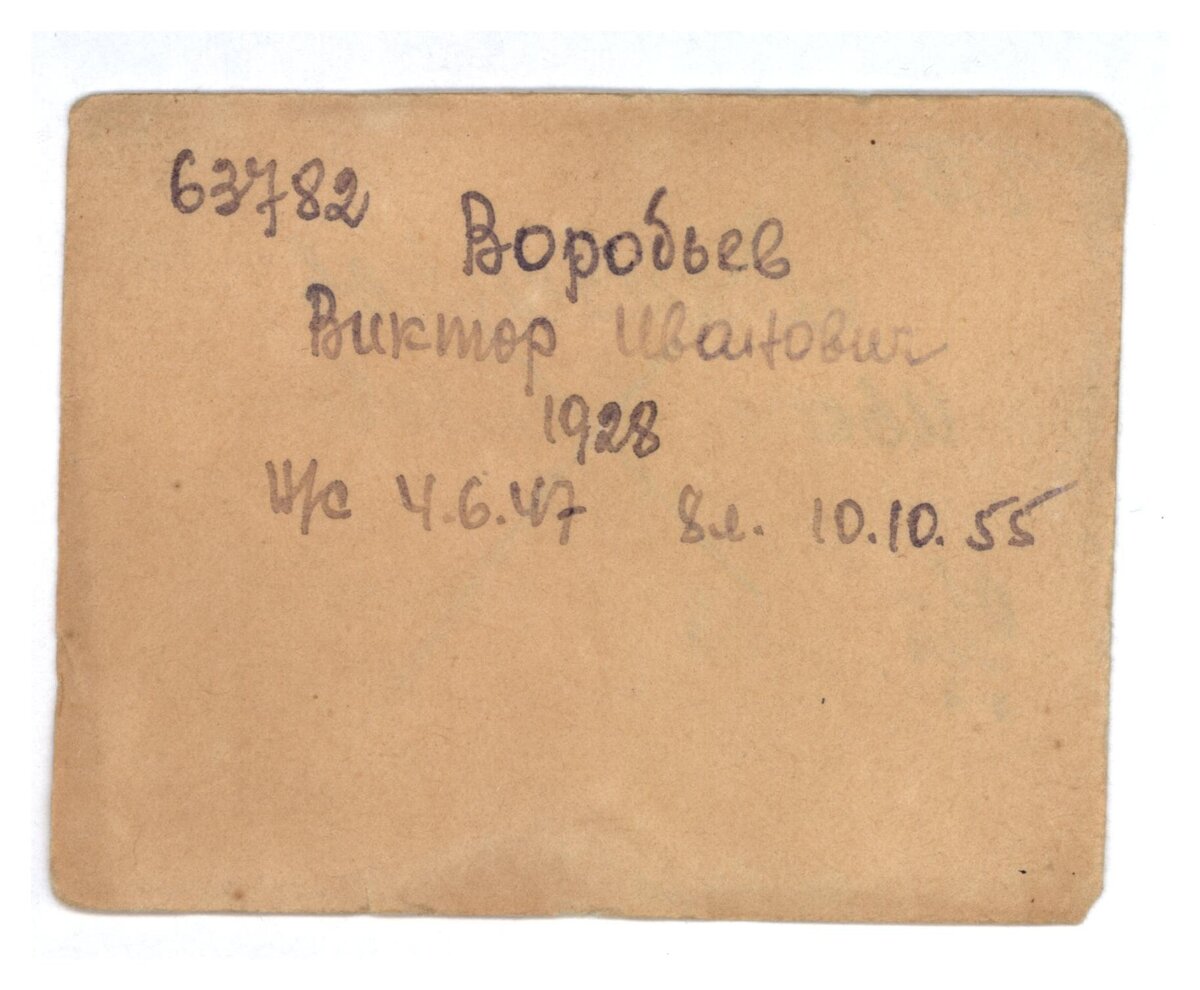 63782
Воробьев
Виктор Иванович
1928
Н/с 4.6.47 8л. 10.10.55